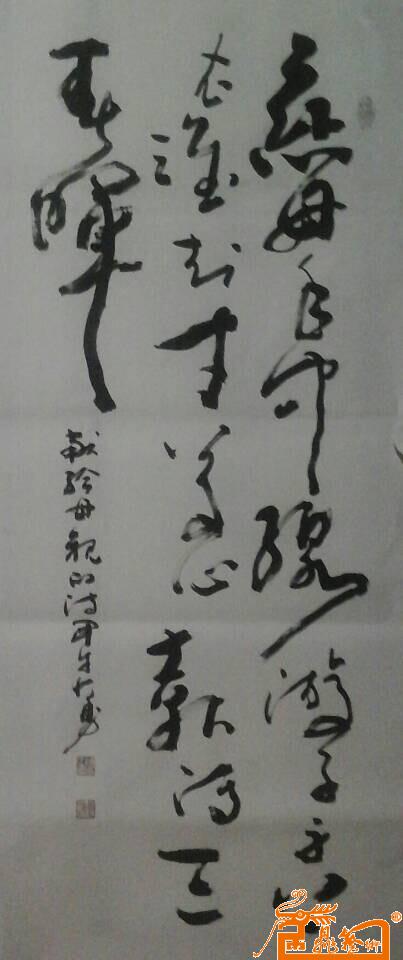 慈母手中線游子身上
衣誰知寸草心報得三
春暉
献給母親的詩甲午